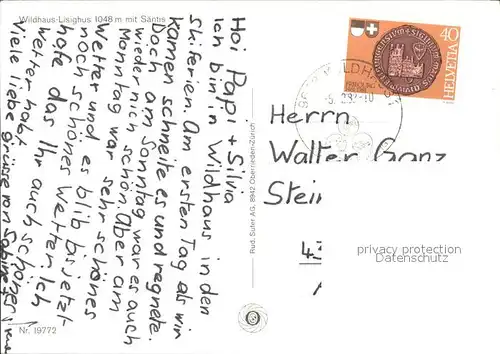 Wildhaus-Lisighus 1048 m mit Säntis
Hoi Papi + Silvia
Ich bin in Wildhaus in den
Skiferien. Am ersten Tag als wir
kamen schneite es und regnete.
Doch am Sonntag war es auch
wieder nich schön. Aber am
Monntag war sehr schönes
Wetter und es blib bis jetzt
noch schönes Wetter. Ich
hofe das Ihr auch schönes
Wetter habt.
Viele liebe grüsse von Sabine
Nr. 19772
Rud. Suter AG, 8942 Oberrieden-Zürich
HELVETIA
40
WILDHAUS
Herrn
Walter Ganz
Stein
privacy protection
Datenschutz